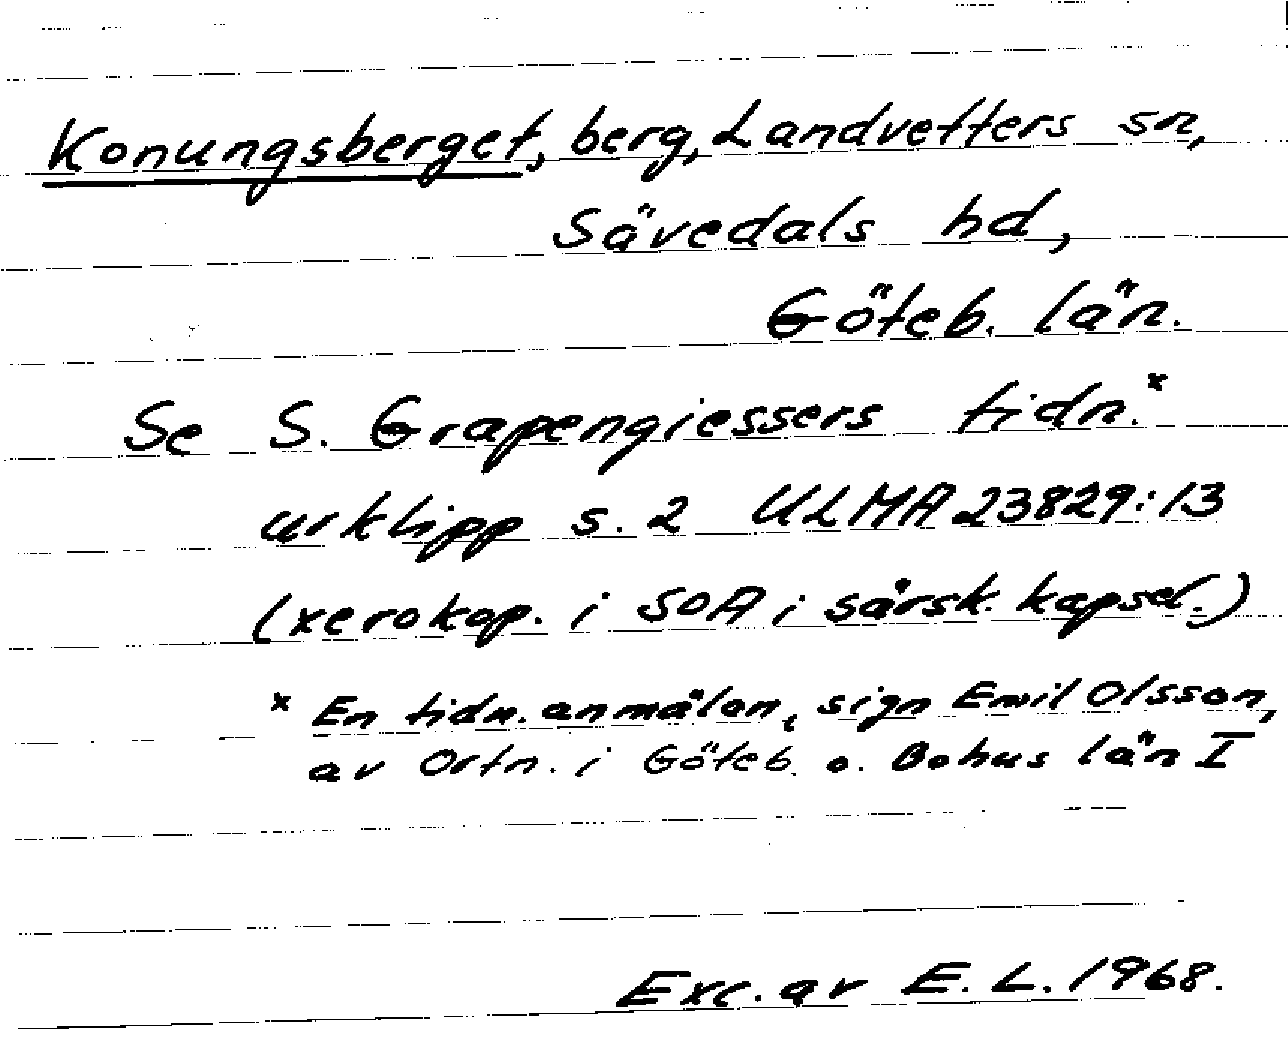 Konungsberget, berg, Landvetters sn,
Sävedals hd,
Göteb. län.
Se S. Grapengiessers tidn.x
urklipp s. 2 ULMA 23829:13
(xerokop. i SOA i särsk. kapsel.)
x En tidn.anmälan, sign Emil Olsson,
av Ortn. i Göteb. o. Bohus län I
Exc. av E. L. 1968.